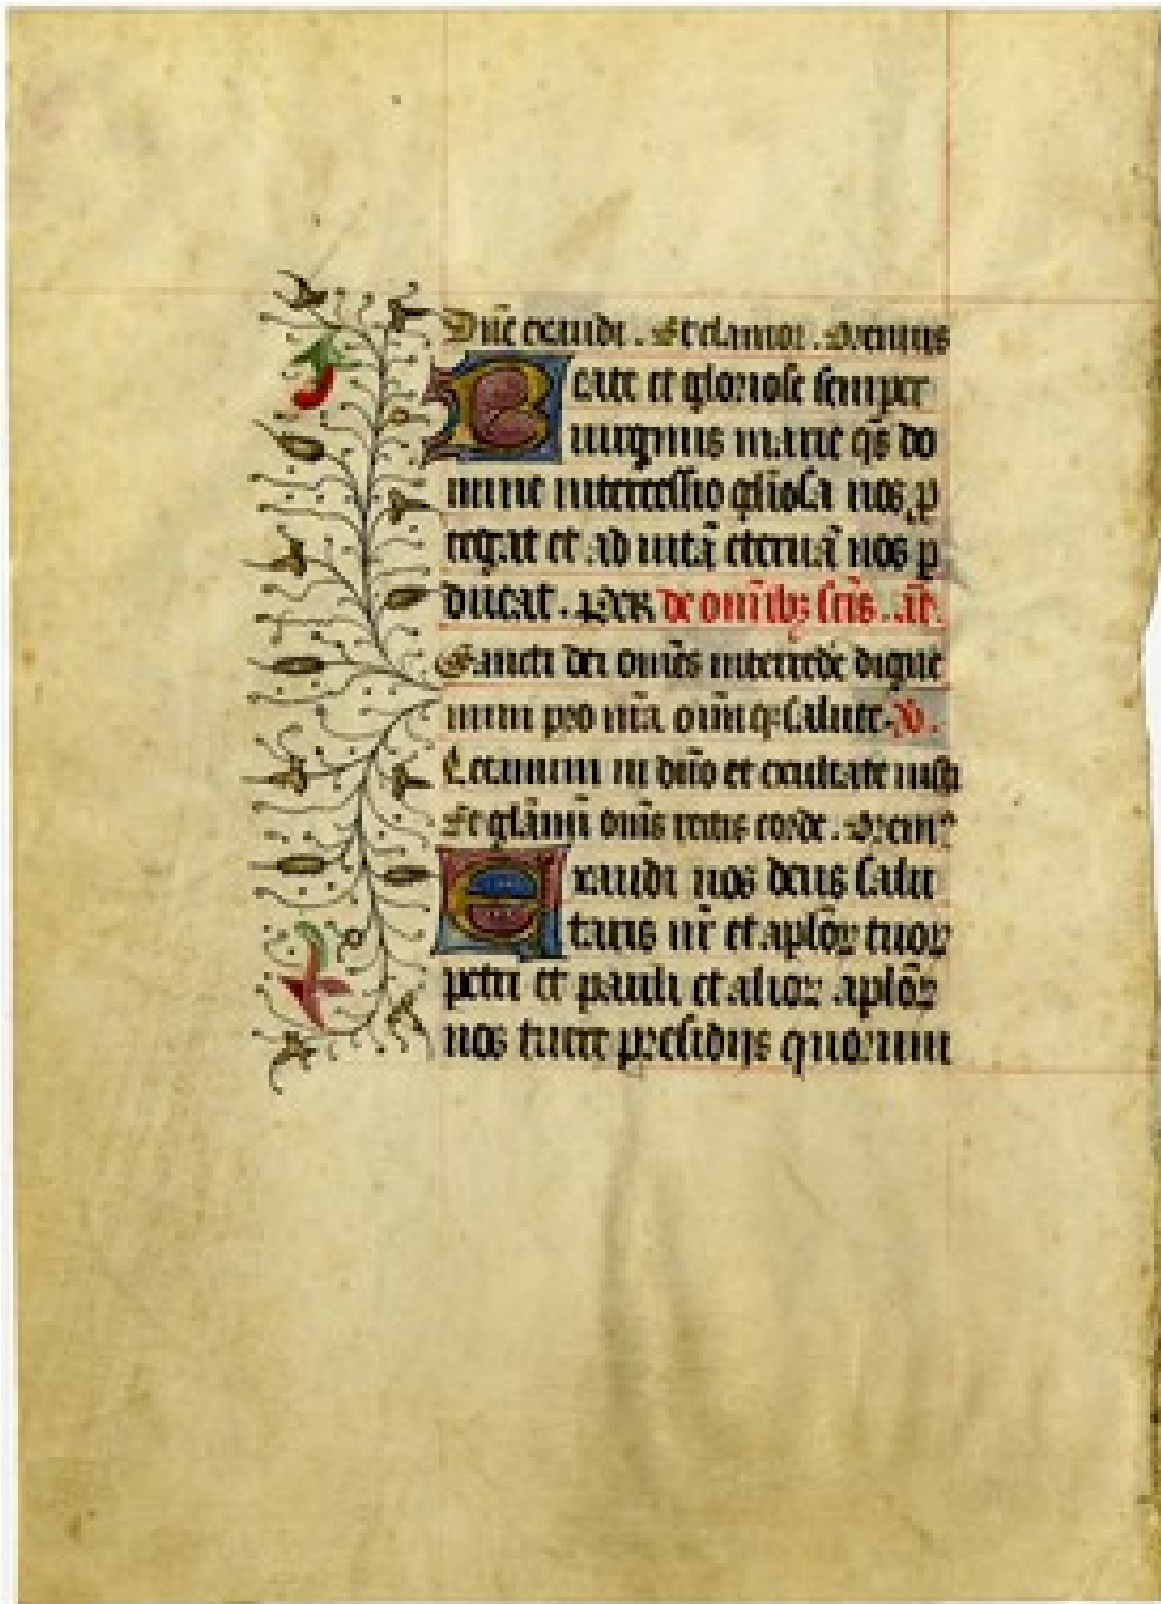 Dñe exaudi . Et clamor . Oremus
Beate et gloriose semper
uirginis marie qs̄ do
mine intercessio gl̄iosa nos ꝓ
tegat et ad uitā eternā nos ꝑ
ducat . Per de om̄ibꝫ sc̄is . añ.
Sancti dei om̄es intercede digne
mini pro nr̄a om̄iū qꝫ salute . V̄.
Letamini in dño et exultate iusti
Et gl̄amī om̄s recti corde . Oremꝰ
Exaudi nos deus salu
taris nr̄ et apl̄oꝝ tuoꝝ
petri et pauli et alioꝝ apl̄oꝝ
nos tuere presidijs quorum